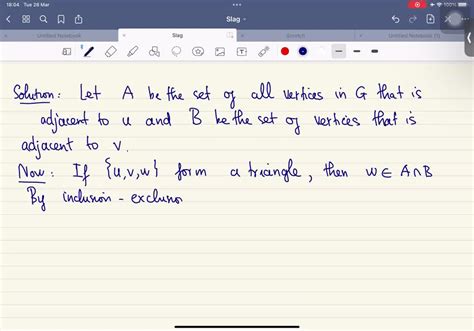 18:04 Tue 26 Mar
100%
Slag
Untitled Notebook
Slag
Untitled Notebook (1)
Solution: Let A be the set of all vertices in G that is
adjacent to u and B be the set of vertices that is
adjacent to v.
Now: If {u,v,w} form a triangle, then w ∈ A∩B
By inclusion - exclusio